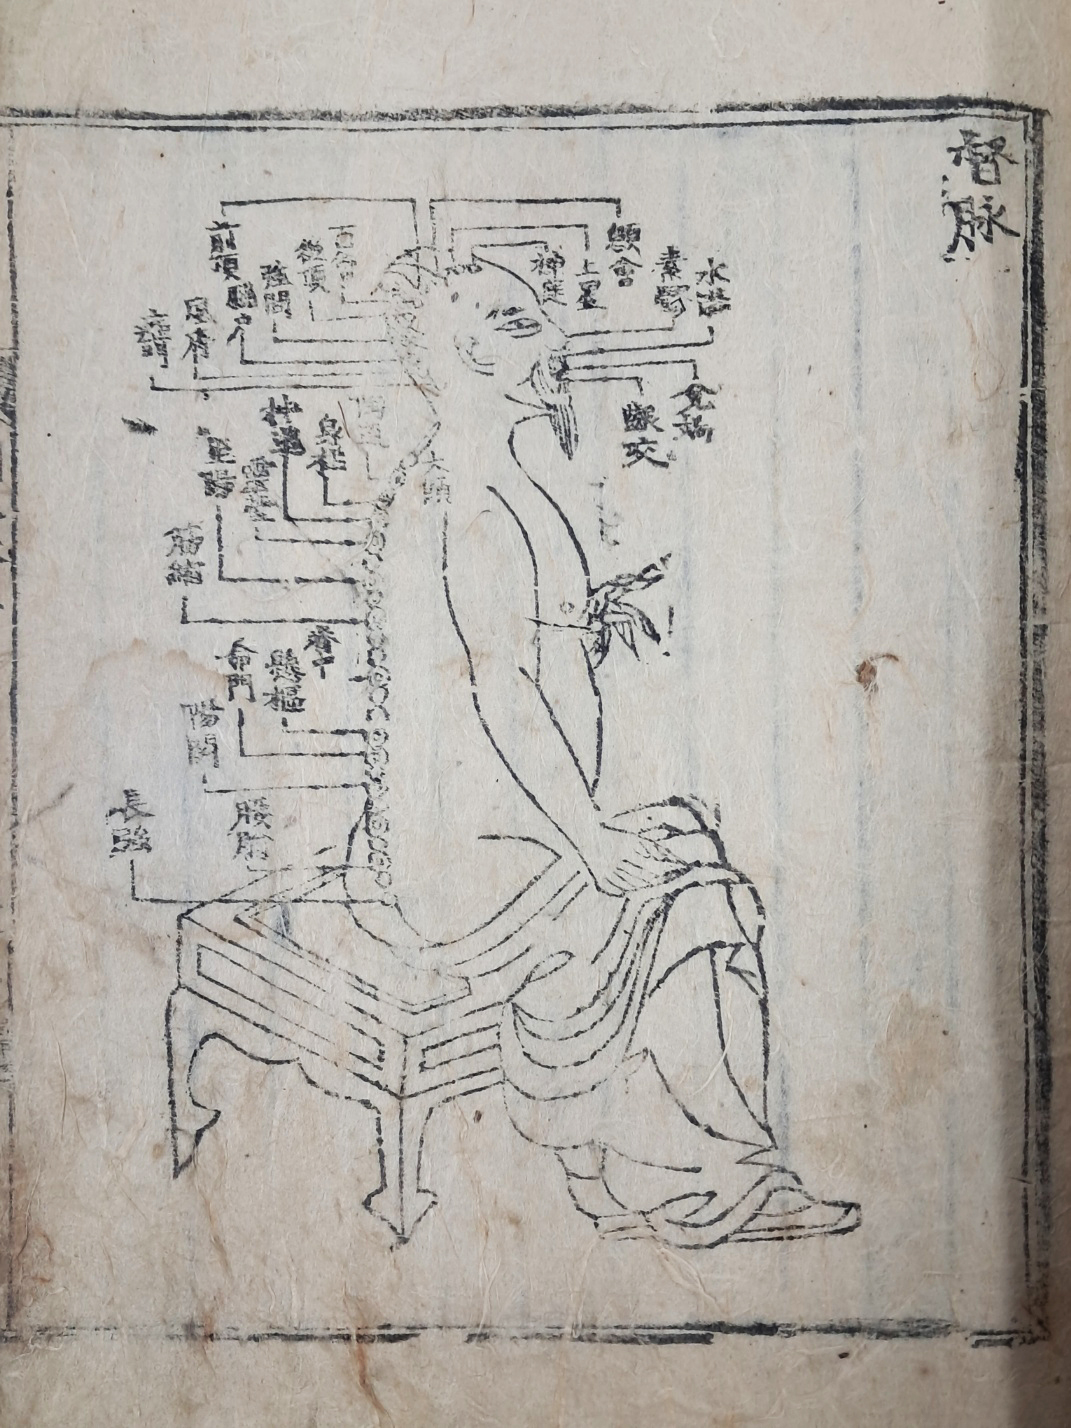 督脉
水溝
素髎
顖會
上星
神庭
兌端
齦交
百會
後頂
強間
前頂
風府
大顀
身柱
神道
至陽
筋縮
脊中
懸樞
命門
陽関
腰俞
長強